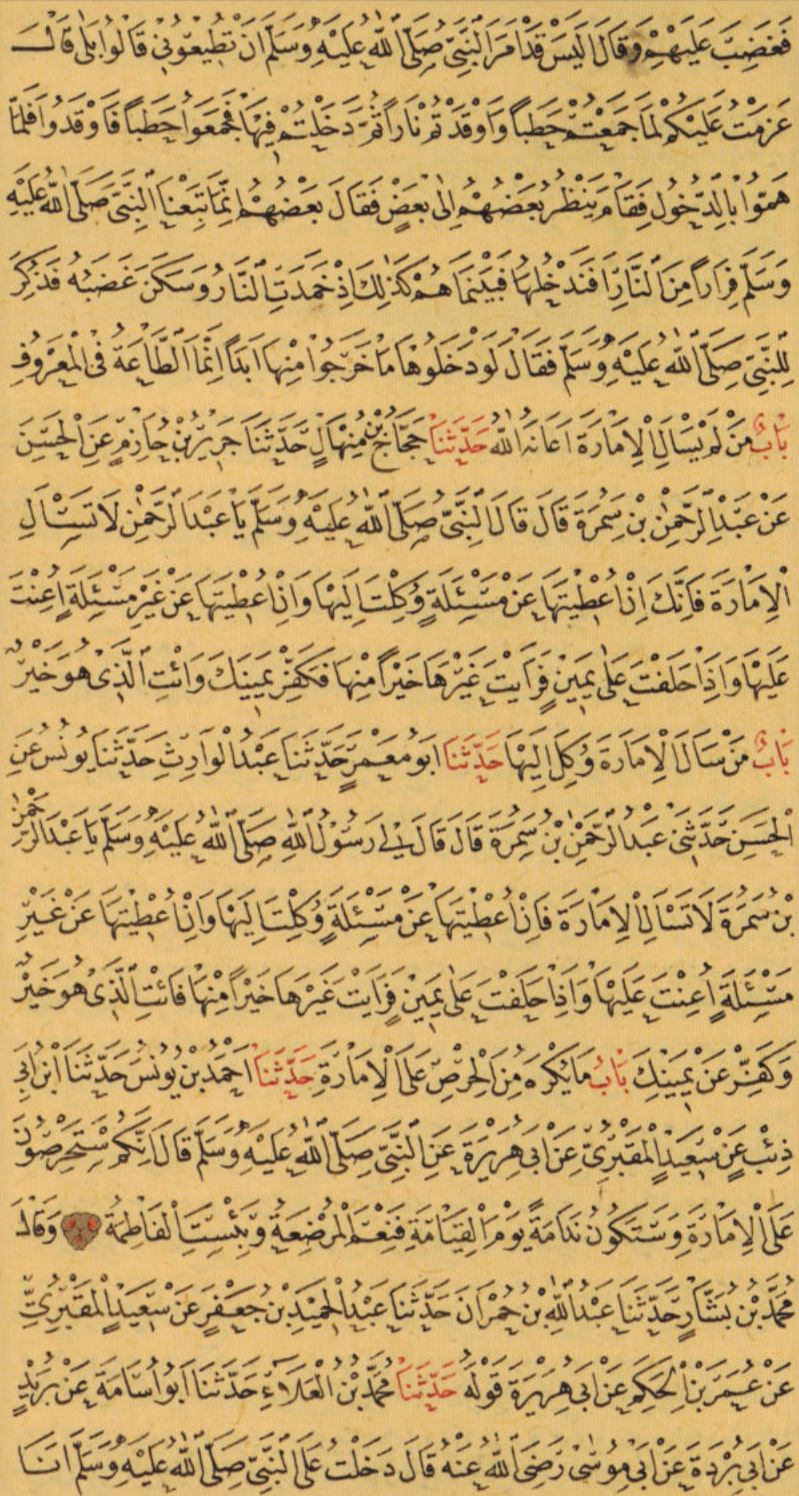 فَغَضِبَ عَلَيْهِمْ وَقَالَ اَلَيْسَ قَدْ اَمَرَ النَّبِيُّ صَلَّى اللّٰهُ عَلَيْهِ وَسَلَّمَ اَنْ تُطِيعُوْنِى قَالُوا بَلٰى قَالَ
عَزَمْتُ عَلَيْكُمْ لَمَا جَمَعْتُمْ حَطَبًا وَاَوْقَدْتُمْ نَارًا ثُمَّ دَخَلْتُمْ فِيهَا فَجَمَعُوا حَطَبًا فَاَوْقَدُوا فَلَمَّا
هَمُّوا بِالدُّخُولِ فَقَامَ يَنْظُرُ بَعْضُهُمْ اِلٰى بَعْضٍ فَقَالَ بَعْضُهُمْ اِنَّمَا تَبِعْنَا النَّبِيَّ صَلَّى اللّٰهُ عَلَيْهِ
وَسَلَّمَ فِرَارًا مِنَ النَّارِ اَفَنَدْخُلُهَا فَبَيْنَمَا هُمْ كَذٰلِكَ اِذْ خَمَدَتِ النَّارُ وَسَكَنَ غَضَبُهُ فَذُكِرَ
لِلنَّبِيِّ صَلَّى اللّٰهُ عَلَيْهِ وَسَلَّمَ فَقَالَ لَوْ دَخَلُوهَا مَا خَرَجُوا مِنْهَا اَبَدًا اِنَّمَا الطَّاعَةُ فِى الْمَعْرُوفِ
بَابُ مَنْ لَمْ يَسْاَلِ الْاِمَارَةَ اَعَانَهُ اللّٰهُ حَدَّثَنَا حَجَّاجُ بْنُ مِنْهَالٍ حَدَّثَنَا جَرِيرُ بْنُ حَازِمٍ عَنِ الْحَسَنِ
عَنْ عَبْدِ الرَّحْمٰنِ بْنِ سَمُرَةَ قَالَ قَالَ النَّبِيُّ صَلَّى اللّٰهُ عَلَيْهِ وَسَلَّمَ يَا عَبْدَ الرَّحْمٰنِ لَا تَسْاَلِ
الْاِمَارَةَ فَاِنَّكَ اِنْ اُعْطِيتَهَا عَنْ مَسْئَلَةٍ وُكِلْتَ اِلَيْهَا وَاِنْ اُعْطِيتَهَا عَنْ غَيْرِ مَسْئَلَةٍ اُعِنْتَ
عَلَيْهَا وَاِذَا حَلَفْتَ عَلٰى يَمِينٍ فَرَاَيْتَ غَيْرَهَا خَيْرًا مِنْهَا فَكَفِّرْ يَمِينَكَ وَائْتِ الَّذِى هُوَ خَيْرٌ
بَابُ مَنْ سَاَلَ الْاِمَارَةَ وُكِلَ اِلَيْهَا حَدَّثَنَا اَبُو مَعْمَرٍ حَدَّثَنَا عَبْدُ الْوَارِثِ حَدَّثَنَا يُونُسُ عَنِ
الْحَسَنِ حَدَّثَنِى عَبْدُ الرَّحْمٰنِ بْنُ سَمُرَةَ قَالَ قَالَ لِى رَسُولُ اللّٰهِ صَلَّى اللّٰهُ عَلَيْهِ وَسَلَّمَ يَا عَبْدَ الرَّحْمٰنِ
بْنَ سَمُرَةَ لَا تَسْاَلِ الْاِمَارَةَ فَاِنْ اُعْطِيتَهَا عَنْ مَسْئَلَةٍ وُكِلْتَ اِلَيْهَا وَاِنْ اُعْطِيتَهَا عَنْ غَيْرِ
مَسْئَلَةٍ اُعِنْتَ عَلَيْهَا وَاِذَا حَلَفْتَ عَلٰى يَمِينٍ فَرَاَيْتَ غَيْرَهَا خَيْرًا مِنْهَا فَائْتِ الَّذِى هُوَ خَيْرٌ
وَكَفِّرْ عَنْ يَمِينِكَ بَابُ مَا يُكْرَهُ مِنَ الْحِرْصِ عَلَى الْاِمَارَةِ حَدَّثَنَا اَحْمَدُ بْنُ يُونُسَ حَدَّثَنَا ابْنُ اَبِى
ذِئْبٍ عَنْ سَعِيدٍ الْمَقْبُرِىِّ عَنْ اَبِى هُرَيْرَةَ عَنِ النَّبِيِّ صَلَّى اللّٰهُ عَلَيْهِ وَسَلَّمَ قَالَ اِنَّكُمْ سَتَحْرِصُونَ
عَلَى الْاِمَارَةِ وَسَتَكُونُ نَدَامَةً يَوْمَ الْقِيَامَةِ فَنِعْمَ الْمُرْضِعَةُ وَبِئْسَتِ الْفَاطِمَةُ وَقَالَ
مُحَمَّدُ بْنُ بَشَّارٍ حَدَّثَنَا عَبْدُ اللّٰهِ بْنُ حُمْرَانَ حَدَّثَنَا عَبْدُ الْحَمِيدِ بْنُ جَعْفَرٍ عَنْ سَعِيدٍ الْمَقْبُرِىِّ
عَنْ عُمَرَ بْنِ الْحَكَمِ عَنْ اَبِى هُرَيْرَةَ قَوْلَهُ حَدَّثَنَا مُحَمَّدُ بْنُ الْعَلَاءِ حَدَّثَنَا اَبُو اُسَامَةَ عَنْ بُرَيْدٍ
عَنْ اَبِى بُرْدَةَ عَنْ اَبِى مُوسٰى رَضِىَ اللّٰهُ عَنْهُ قَالَ دَخَلْتُ عَلَى النَّبِيِّ صَلَّى اللّٰهُ عَلَيْهِ وَسَلَّمَ اَنَا